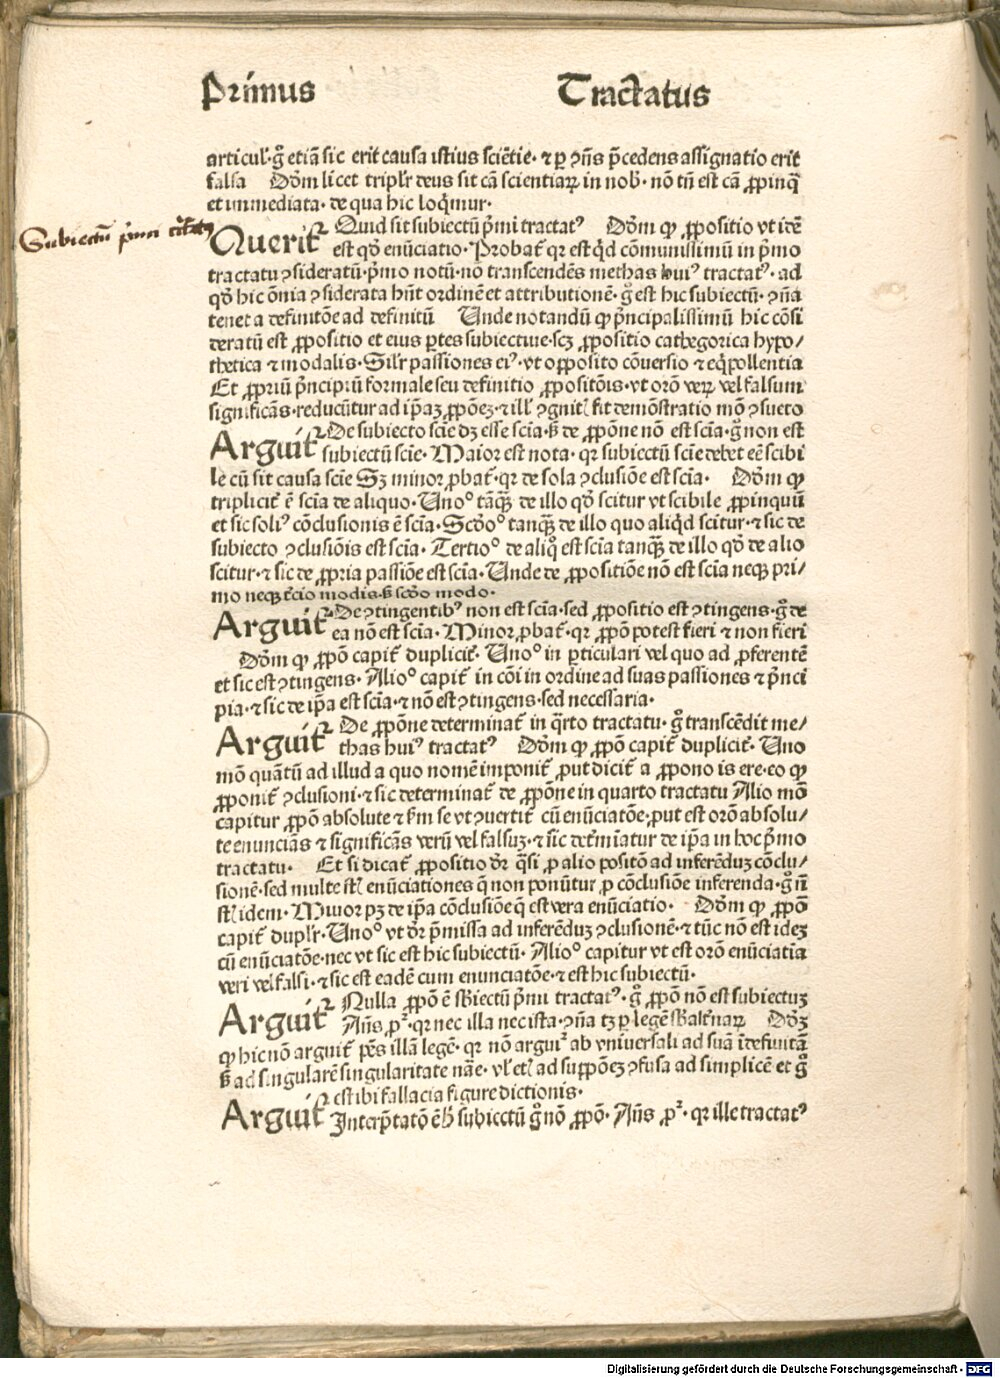 Primus Tractatus
articul̛·g̊ etiã sic erit causa istius sciẽtie· ⁊ ꝑ ꝯñs p̃cedens assignatio erit
falsa Dõm licet triplr̃ deus sit cã scientiaꝝ in nob̛· nõ tñ est cã ꝓpinq̃
et immediata· de qua hic loq̃mur·
Subiectũ p̃mi tctatꝰ
Querit᷑ Quid sit subiectũ p̃mi tractatꝰ Dõm ꝙ ꝓpositio vt idẽ
est qđ enũciatio· Probat᷑ qr est q̇d cõmunissimũ in p̃mo
tractatu ꝯsideratũ· p̃mo notũ· nõ transcendẽs methas huiꝰ tractatꝰ· ad
qđ hic õnia ꝯsiderata hñt ordinẽ et attributionẽ· g̊ est hic subiectũ· ꝯñа
tenet a definitõe ad definitũ Unde notandũ ꝙ p̃ncipalissimũ hic cõsi
deratũ est ꝓpositio et eius ꝑtes subiectiue· scꝫ ꝓpositio cathegorica hypo/
thetica ⁊ modalis· Silr̃ passiones eiꝰ· vt opposito cõuersio ⁊ eq̃pollentia
Et ꝓpriũ p̃ncipiũ formale seu definitio ꝓpositõis· vt orõ veꝝ vel falsum
significãs· reducũtur ad ip̃aꝫ ꝓpõeꝫ· ⁊ ill̛ ꝯgnit̛ fit demõstratio mõ ꝯsueto
Arguit᷑ De subiecto scie dꝫ esse scĩa· ꝫ de ꝓpõne nõ est scĩa· g̊ non est
subiectũ scĩe· Maior est nota· qr subiectũ scĩe debet eẽ scibi
le cũ sit causa scĩe Sꝫ minor ꝓbat᷑· qr de sola ꝯclusiõe est scĩa· Dõm ꝙ
triplicit᷑ ẽ scĩa de aliquo· Unoº tãq̃ꝫ de illo qđ scitur vt scibile ꝓpinquũ
et sic soliꝰ cõclusionis ẽ scĩa· Scd̃oº tanq̃ꝫ de illo quo aliq̇d scitur· ⁊ sic de
subiecto ꝯclusiõis est scĩa· Tertioº de aliq̊ est scĩa tanq̃ꝫ de illo qđ de alio
scitur· ⁊ sic de ꝓpria passiõe est scĩa· Unde de ꝓpositiõe nõ est scĩa neqꝫ pri/
mo neqꝫ t̃cio modis· ꝫ scd̃o modo·
Arguit᷑ De ꝯtingentibꝰ non est scĩa· sed ꝓpositio est ꝯtingens· g̊ de
ea nõ est scĩa· Minor ꝓbat᷑· qr ꝓpõ potest fieri ⁊ non fieri
Dõm ꝙ ꝓpõ capit᷑ duplicit᷑· Unoº in ꝑticulari vel quo ad ꝓferentẽ
et sic est ꝯtingens· Alioº capit᷑ in cõi in ordine ad suas passiones ⁊ p̃nci
pia· ⁊ sic de ip̃a est scĩa· ⁊ nõ est ꝯtingens· sed necessaria·
Arguit᷑ De ꝓpõne determinat᷑ in q̃rto tractatu· g̊ transcẽdit me/
thas huiꝰ tractatꝰ Dõm ꝙ ꝓpõ capit᷑ duplicit᷑· Uno
mõ quãtũ ad illud a quo nomẽ imponit᷑ ꝓut dicit᷑ a ꝓpono is ere· eo ꝙ
ꝓponit᷑ ꝯclusioni· ⁊ sic determinat᷑ de ꝓpõne in quarto tractatu Alio mõ
capitur ꝓpõ absolute ⁊ ẜm se vt ꝯuertit᷑ cũ enũciatõe· ꝓut est orõ absolu/
te enuncians ⁊ significãs verũ vel falsuꝫ· ⁊ sic det̃mĩatur de ip̃a in hoc p̃mo
tractatu· Et si dicat᷑ ꝓpositio dr̃ q̃si ꝓ alio positõ ad inferẽduꝫ cõclu/
sionẽ· sed multe st̛ enũciationes q̃ non ponũtur ꝓ cõclusiõe inferenda· g̊ ñ
st̛ idem· Minor pꝫ de ip̃a cõclusiõe q̃ est vera enũciatio· Dõm ꝙ ꝓpõ
capit᷑ duplr̃· Unoº vt dr̃ p̃missa ad inferẽduꝫ ꝯclusionẽ· ⁊ tũc nõ est ideꝫ
cũ enũciatõe· nec vt sic est hic subiectũ· Alioº capitur vt est orõ enũciatĩa
veri vel falsi· ⁊ sic est eadẽ cum enunciatõe· ⁊ est hic subiectũ·
Arguit᷑ Nulla ꝓpõ ẽ sb̃iectũ p̃mi tractatꝰ· g̊ ꝓpõ nõ est subiectuꝫ
Añs pꝫ· qr nec illa nec ista· ꝯña tꝫ ꝑ legẽ sb̃alt̃naꝝ Dõꝫ
ꝙ hic nõ arguit᷑ pẽs illã legẽ· qr nõ arguit᷑ ab vniuersali ad suã ĩdefinitã
ꝫ ad singularẽ singularitate nãe· vl̛ et̛ ad suppõeꝫ ꝯfusa ad simplicẽ et g̊
est ibi fallacia figure dictionis·
Arguit᷑ Interp̃tatõ ẽ h̛ subiectũ g̊ nõ ꝓpõ· Añs pꝫ· qr ille tractatꝰ
Digitalisierung gefördert durch die Deutsche Forschungsgemeinschaft - DFG